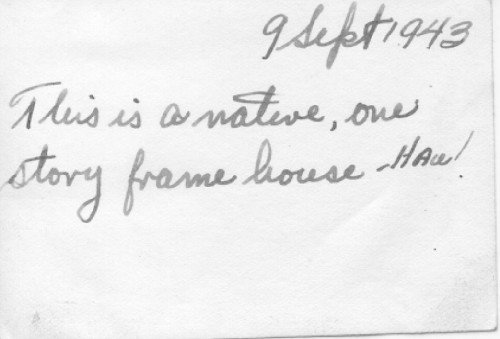 9 Sept 1943
This is a native, one
story frame house - HAw!